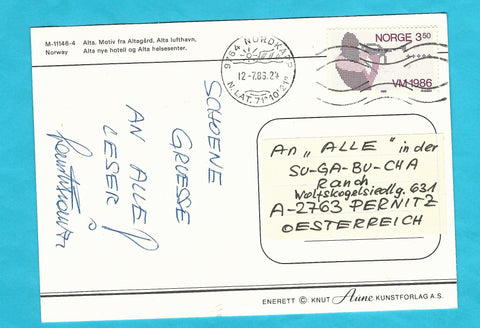 M-11146-4 Alta. Motiv fra Altagård, Alta lufthavn,
Norway Alta nye hotell og Alta helsesenter.
9764 NORDKAPP
12-7.86.21
N.LAT. 71°10'21"
NORGE 3,50
VM-1986
SCHOENE
GRUESSE
AN ALLE
LESER
An „ALLE" in der
SU-GA-BU-CHA
Ranch
Wolfskogelsiedlg. 631
A-2763 PERNITZ
OESTERREICH
ENERETT © KNUT Aune KUNSTFORLAG A.S.